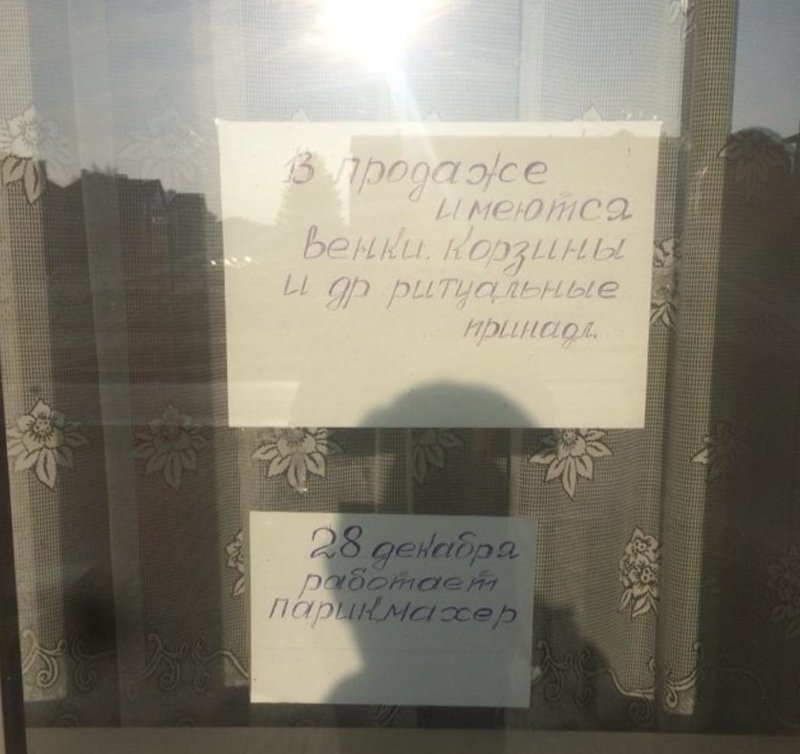 В продаже
имеются
венки. корзины
и др ритуальные
принадл.
28 декабря
работает
парикмахер